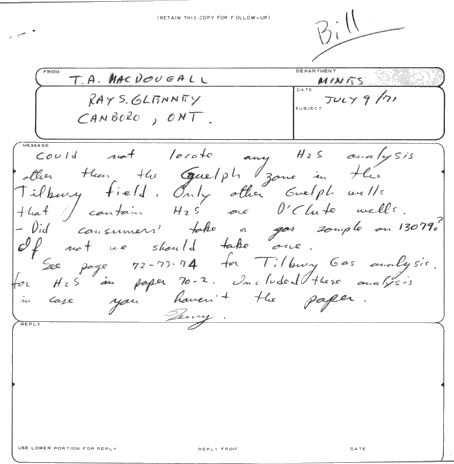 (RETAIN THIS COPY FOR FOLLOW-UP)
Bill
FROM
T.A. MACDOUGALL
DEPARTMENT
MINES
RAY S. GLENNEY
CANBORO, ONT.
DATE
JULY 9/71
SUBJECT
MESSAGE
Could not locate any H2S analysis
other than the Guelph zone in the
Tilbury field. Only other Guelph wells
that contain H2S are D'Clute wells.
- Did consumers' take a gas sample on 13079?
If not we should take one.
See page 72-73-74 for Tilbury Gas analysis.
for H2S in paper 70-2. Included these analysis
in case you haven't the paper.
REPLY
USE LOWER PORTION FOR REPLY
REPLY FROM
DATE